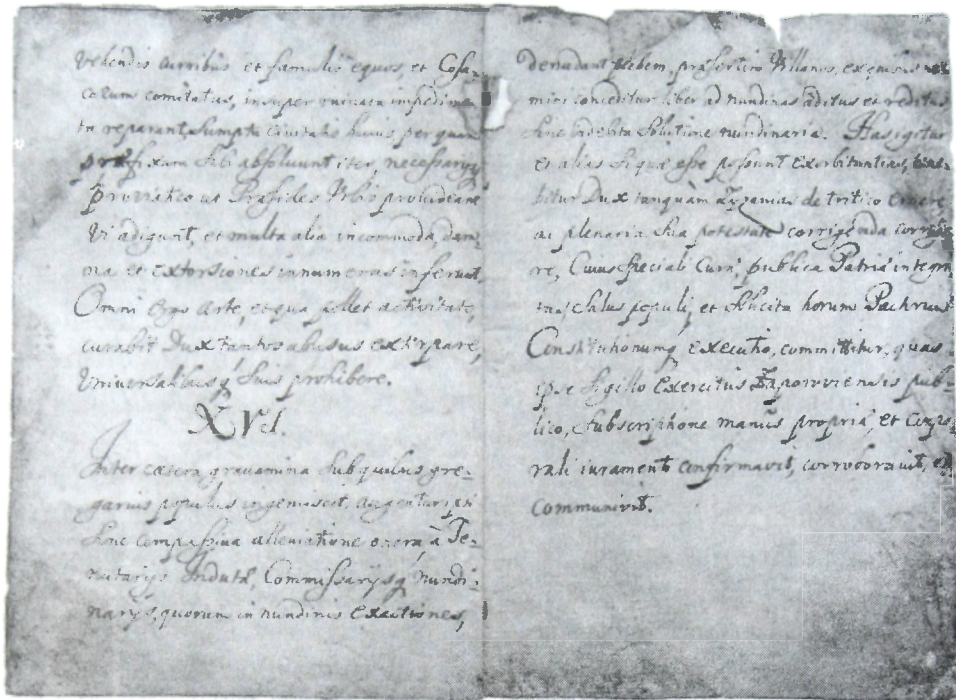 vehendis curribus et famulis equos, et Cosa-
corum comitatus, insuper
sumptu civitatis huius, per quam
sibi absolvunt iter, necessarys
ut Praesides Urbis provideant
vi adigunt, et multa alia incommoda, dam-
na et extorsiones innumeras inferunt,
Omni ergo arte, et qua pollet activitate,
curabit Dux tantos abusus extirpare,
Universalibusq suis prohibere.
XVI.
Inter caetera gravamina sub quibus gre-
garius populus ingemiscit, augentur ipsi
sine compassiva alleviatione onera, à Te-
nutarys Inductae, Commissarysq nundi-
narys, quorum in nundinis exactiones,
denudant plebem, praesertim
mini conceditur liber ad nundinas aditus et reditus
sine indebita solutione nundinaria. Has igitur
et alias si quae esse possunt exorbitantias,
Dux tanquàm zyzanias de tritico
ac plenaria sua potestate corrigenda
re, Cuius speciali Curae, publica Patriae integri-
tas, salus populi, et solicita horum Pactorum
Constitutionumq executio, committitur, quas
ipse sigillo Exercitus Zaporoviensis pub-
lico, subscriptione manus propriae, et Corpo-
rali iuramento confirmavit, corroboravit, et
communivit.